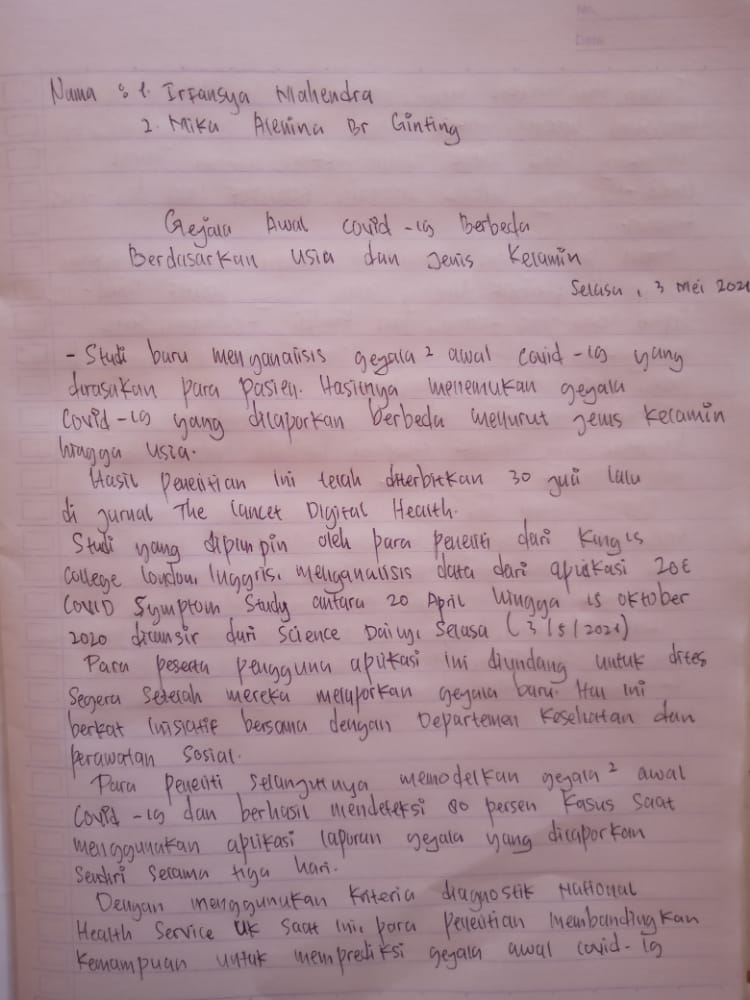 No.
Date
Nama : 1. Irfansya Mahendra
2. Mika Alenina Br Ginting
Gejala Awal covid-19 Berbeda
Berdasarkan usia dan Jenis Kelamin
Selasa, 3 Mei 2021
- Studi baru menganalisis gejala² awal covid-19 yang
dirasakan para pasien. Hasilnya menemukan gejala
Covid-19 yang dilaporkan berbeda menurut jenis kelamin
hingga usia.
Hasil penelitian ini telah diterbitkan 30 juli lalu
di jurnal The Lancet Digital Health.
Studi yang dipimpin oleh para peneliti dari King's
College London, Inggris, menganalisis data dari aplikasi ZOE
COVID Symptom Study antara 20 April hingga 15 oktober
2020 dilansir dari Science Daily, Selasa (3/5/2021)
Para peserta pengguna aplikasi ini diundang untuk dites
segera setelah mereka melaporkan gejala baru. Hal ini
berkat inisiatif bersama dengan Departemen Kesehatan dan
perawatan sosial.
Para peneliti selanjutnya memodelkan gejala² awal
Covid-19 dan berhasil mendeteksi 80 persen kasus saat
menggunakan aplikasi laporan gejala yang dilaporkan
sendiri selama tiga hari.
Dengan menggunakan kriteria diagnostik National
Health Service UK saat ini, para penelitian membandingkan
kemampuan untuk memprediksi gejala awal covid-19